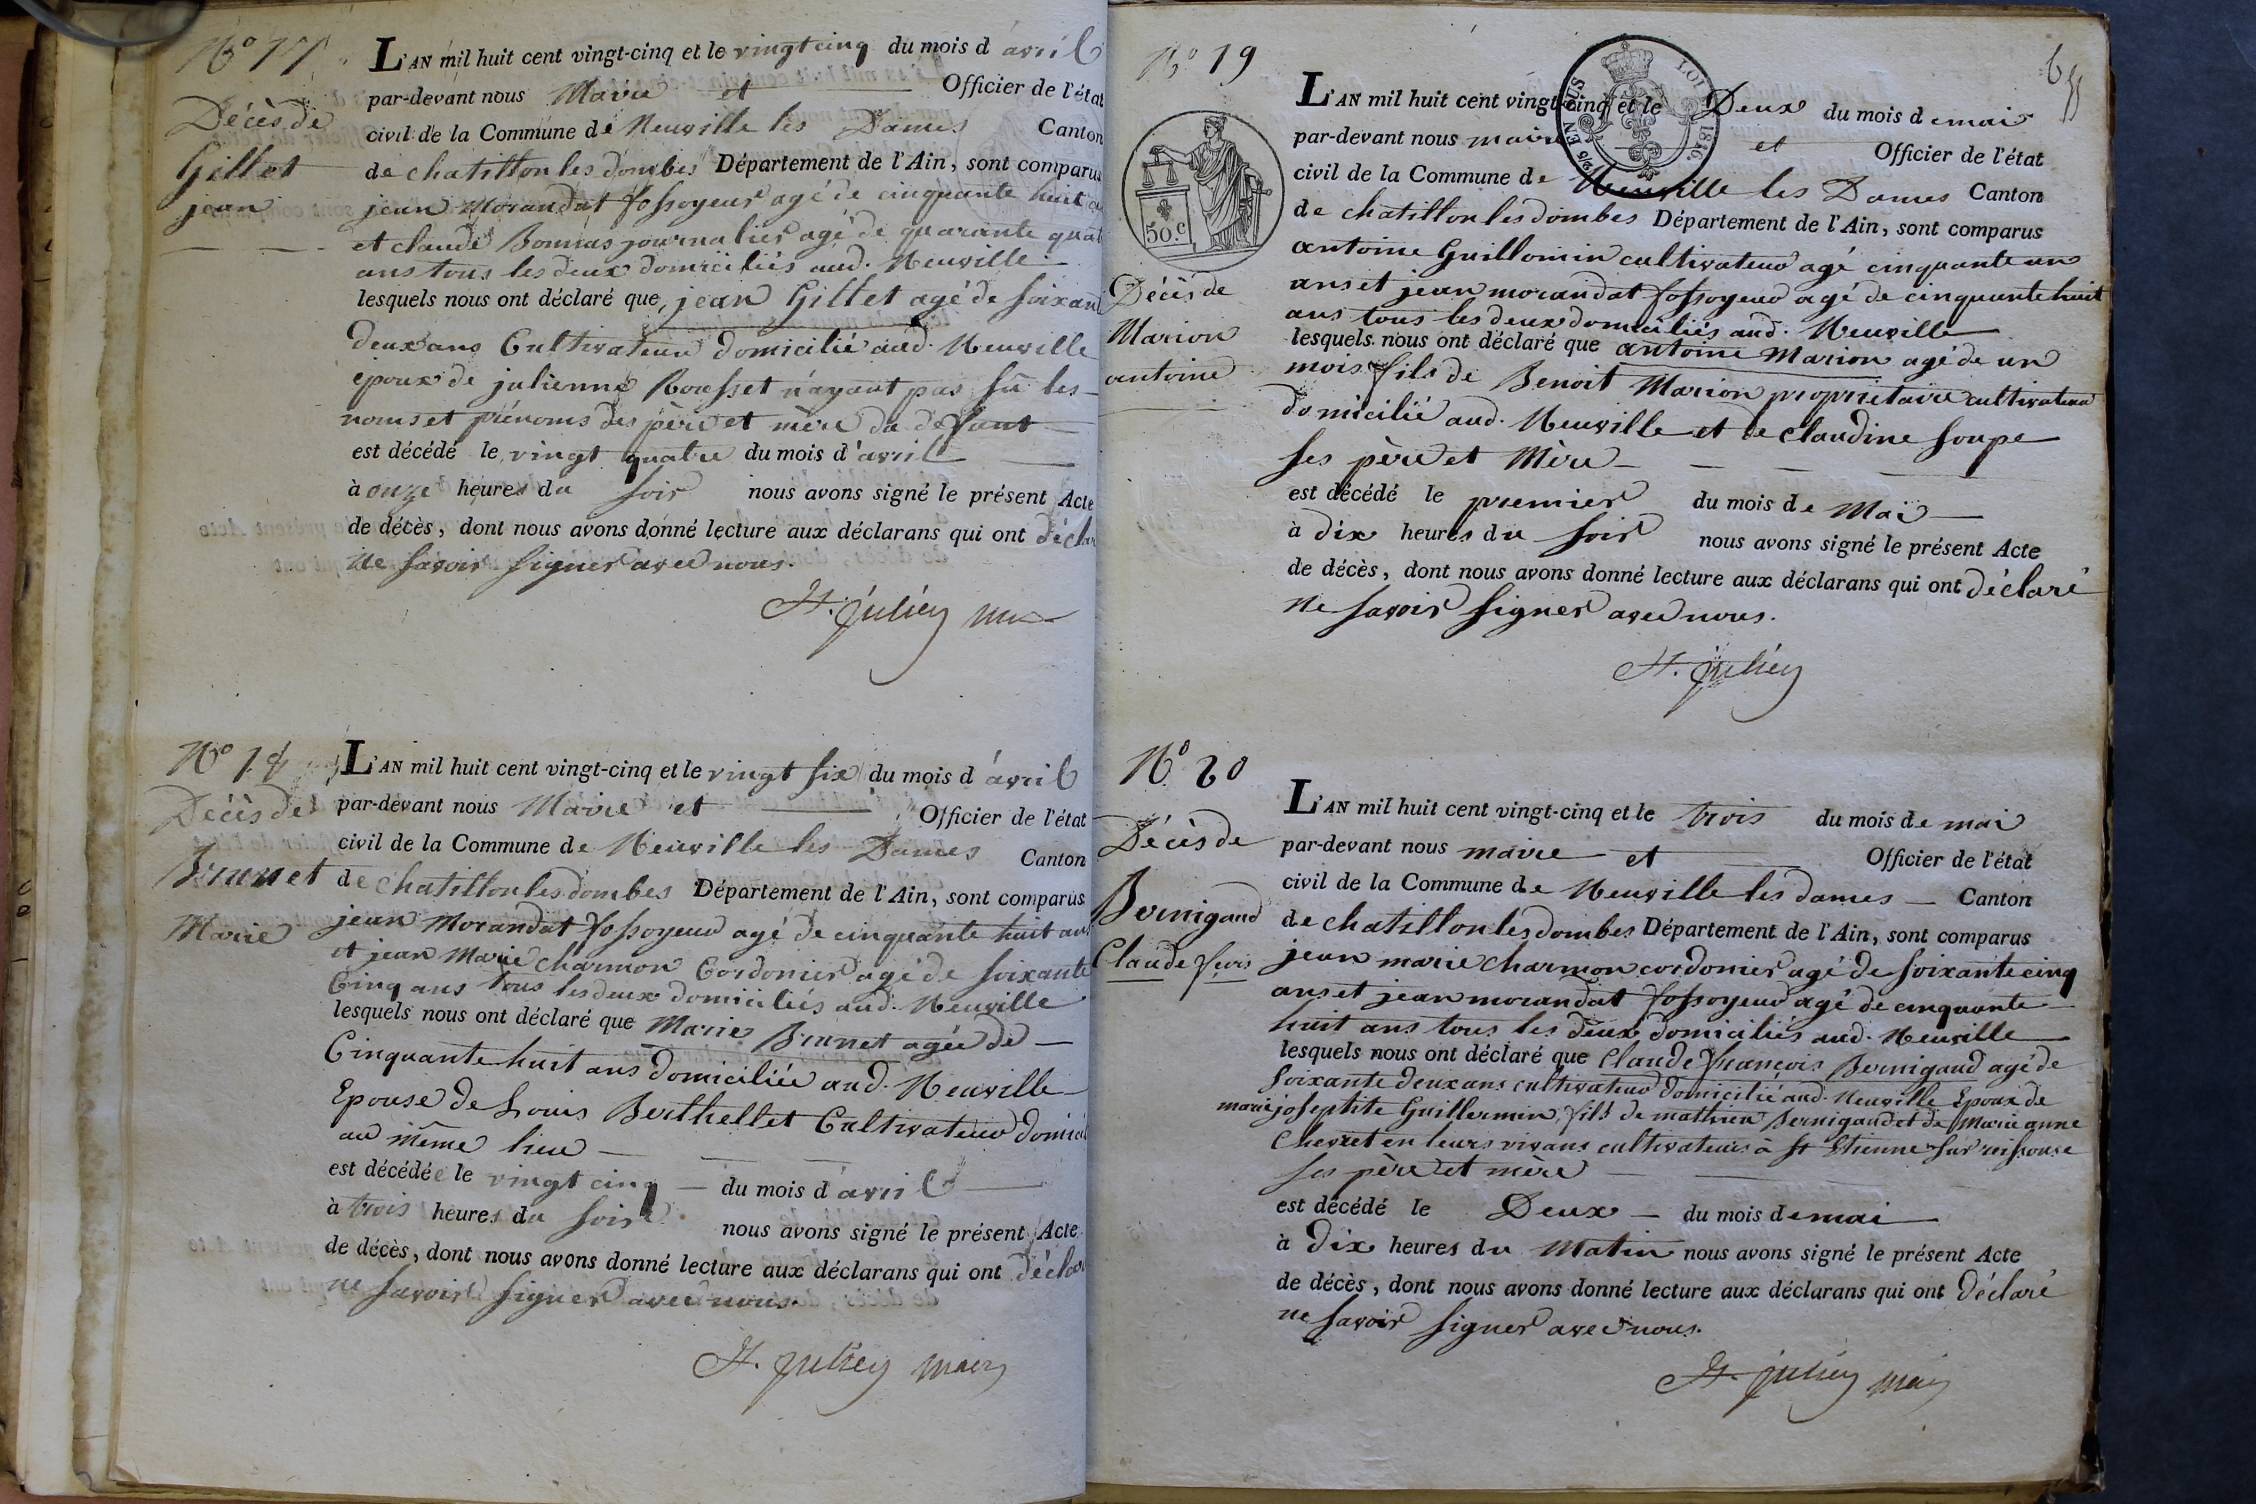 No 17
Décès de
Gillet
jean
L'AN mil huit cent vingt-cinq et le vingt cinq du mois d'avril
par-devant nous Maire et Officier de l'état
civil de la Commune de Neuville les Dames Canton
de chatillon les dombes Département de l'Ain, sont comparus
jean Morandat fossoyeur agé de cinquante huit
et claude Bonnas journalier agé de quarante quat
ans tous les deux domiciliés aud. Neuville
lesquels nous ont déclaré que, jean Gillet agé de soixant
deux ans Cultivateur domicilié aud. Neuville
époux de julienne Rousset n'ayant pas sû les
noms et prénoms des père et mère du défunt
est décédé le vingt quatre du mois d'avril
à onze heures du soir nous avons signé le présent Acte
de décès, dont nous avons donné lecture aux déclarans qui ont décla
ne savoir signer avec nous.
St. julien
No 18
Décès de
Brunet
Marie
L'AN mil huit cent vingt-cinq et le vingt six du mois d'avril
par-devant nous Maire et Officier de l'état
civil de la Commune de Neuville les Dames Canton
de chatillon les dombes Département de l'Ain, sont comparus
jean Morandat fossoyeur agé de cinquante huit ans
et jean Marie charmon Cordonier agé de soixante
Cinq ans tous les deux domiciliés aud. Neuville
lesquels nous ont déclaré que Marie Brunet agée de
Cinquante huit ans domiciliée aud. Neuville
Epouse de Louis Berthellet Cultivateur domici
au même lieu
est décédée le vingt cinq du mois d'avril
à trois heures du soir nous avons signé le présent Acte
de décès, dont nous avons donné lecture aux déclarans qui ont déclar
ne savoir signer avec nous.
St. julien maire
No 19
Décès de
Marion
antoine
50.c
LOI 1816.
EN SUS
L'AN mil huit cent vingt-cinq et le Deux du mois de mai
par-devant nous maire et Officier de l'état
civil de la Commune de Neuville les Dames Canton
de chatillon les dombes Département de l'Ain, sont comparus
antoine Guillomin cultivateur agé cinquante un
ans et jean morandat fossoyeur agé de cinquante huit
ans tous les deux domiciliés aud. Neuville
lesquels nous ont déclaré que antoine Marion agé de un
mois fils de Benoit Marion proprietaire cultivateur
domicilié aud. Neuville et de claudine soupe
ses père et Mère
est décédé le premier du mois de Mai
à dix heures du soir nous avons signé le présent Acte
de décès, dont nous avons donné lecture aux déclarans qui ont déclaré
ne savoir signer avec nous.
St. julien
No 20
Décès de
Bernigaud
Claude fcois
L'AN mil huit cent vingt-cinq et le trois du mois de mai
par-devant nous maire et Officier de l'état
civil de la Commune de Neuville les dames Canton
de chatillon les dombes Département de l'Ain, sont comparus
jean marie charmon cordonier agé de soixante cinq
ans et jean morandat fossoyeur agé de cinquante
huit ans tous les deux domiciliés aud. Neuville
lesquels nous ont déclaré que Claude françois Bernigaud agé de
soixante deux ans cultivateur domicilié aud. Neuville Epoux de
marie josephte Guillermin, fils de mathieu Bernigaud et de Marie anne
Chevret en leurs vivans cultivateurs à St Etienne sur reissouse
ses père et mère
est décédé le Deux du mois de mai
à Dix heures du Matin nous avons signé le présent Acte
de décès, dont nous avons donné lecture aux déclarans qui ont déclaré
ne savoir signer avec nous.
St. julien maire